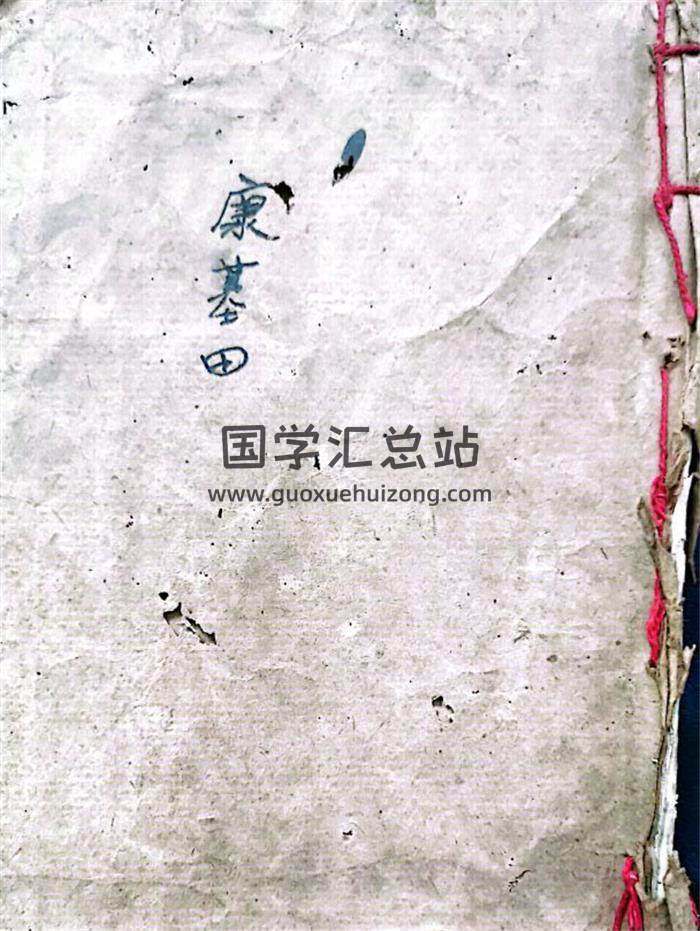 康基田
国学汇总站
www.guoxuehuizong.com